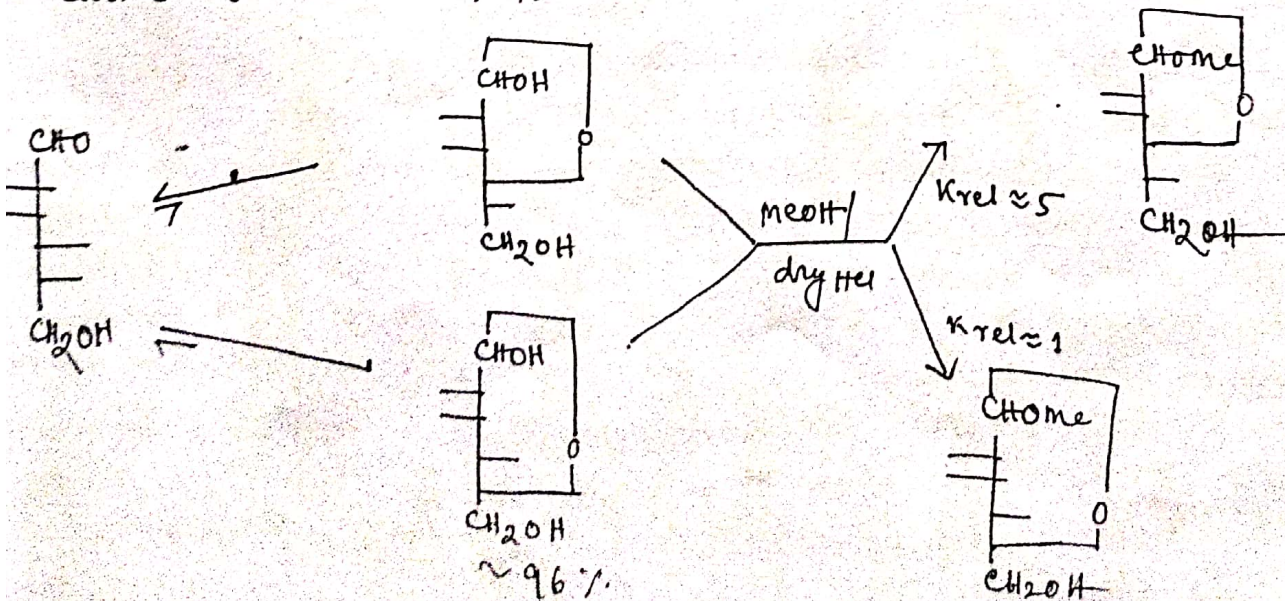 CHOH
O
CH2OH
CHOMe
O
CH2OH
CHO
CH2OH
MeOH
dry HCl
Krel ≈ 5
Krel ≈ 1
CHOH
O
CH2OH
~ 96 %
CHOMe
O
CH2OH